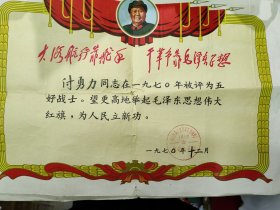 大海航行靠舵手 干革命靠毛泽东思想
付勇力同志在一九七〇年被评为五
好战士。望更高地举起毛泽东思想伟大
红旗，为人民立新功。
一九七〇年十二月